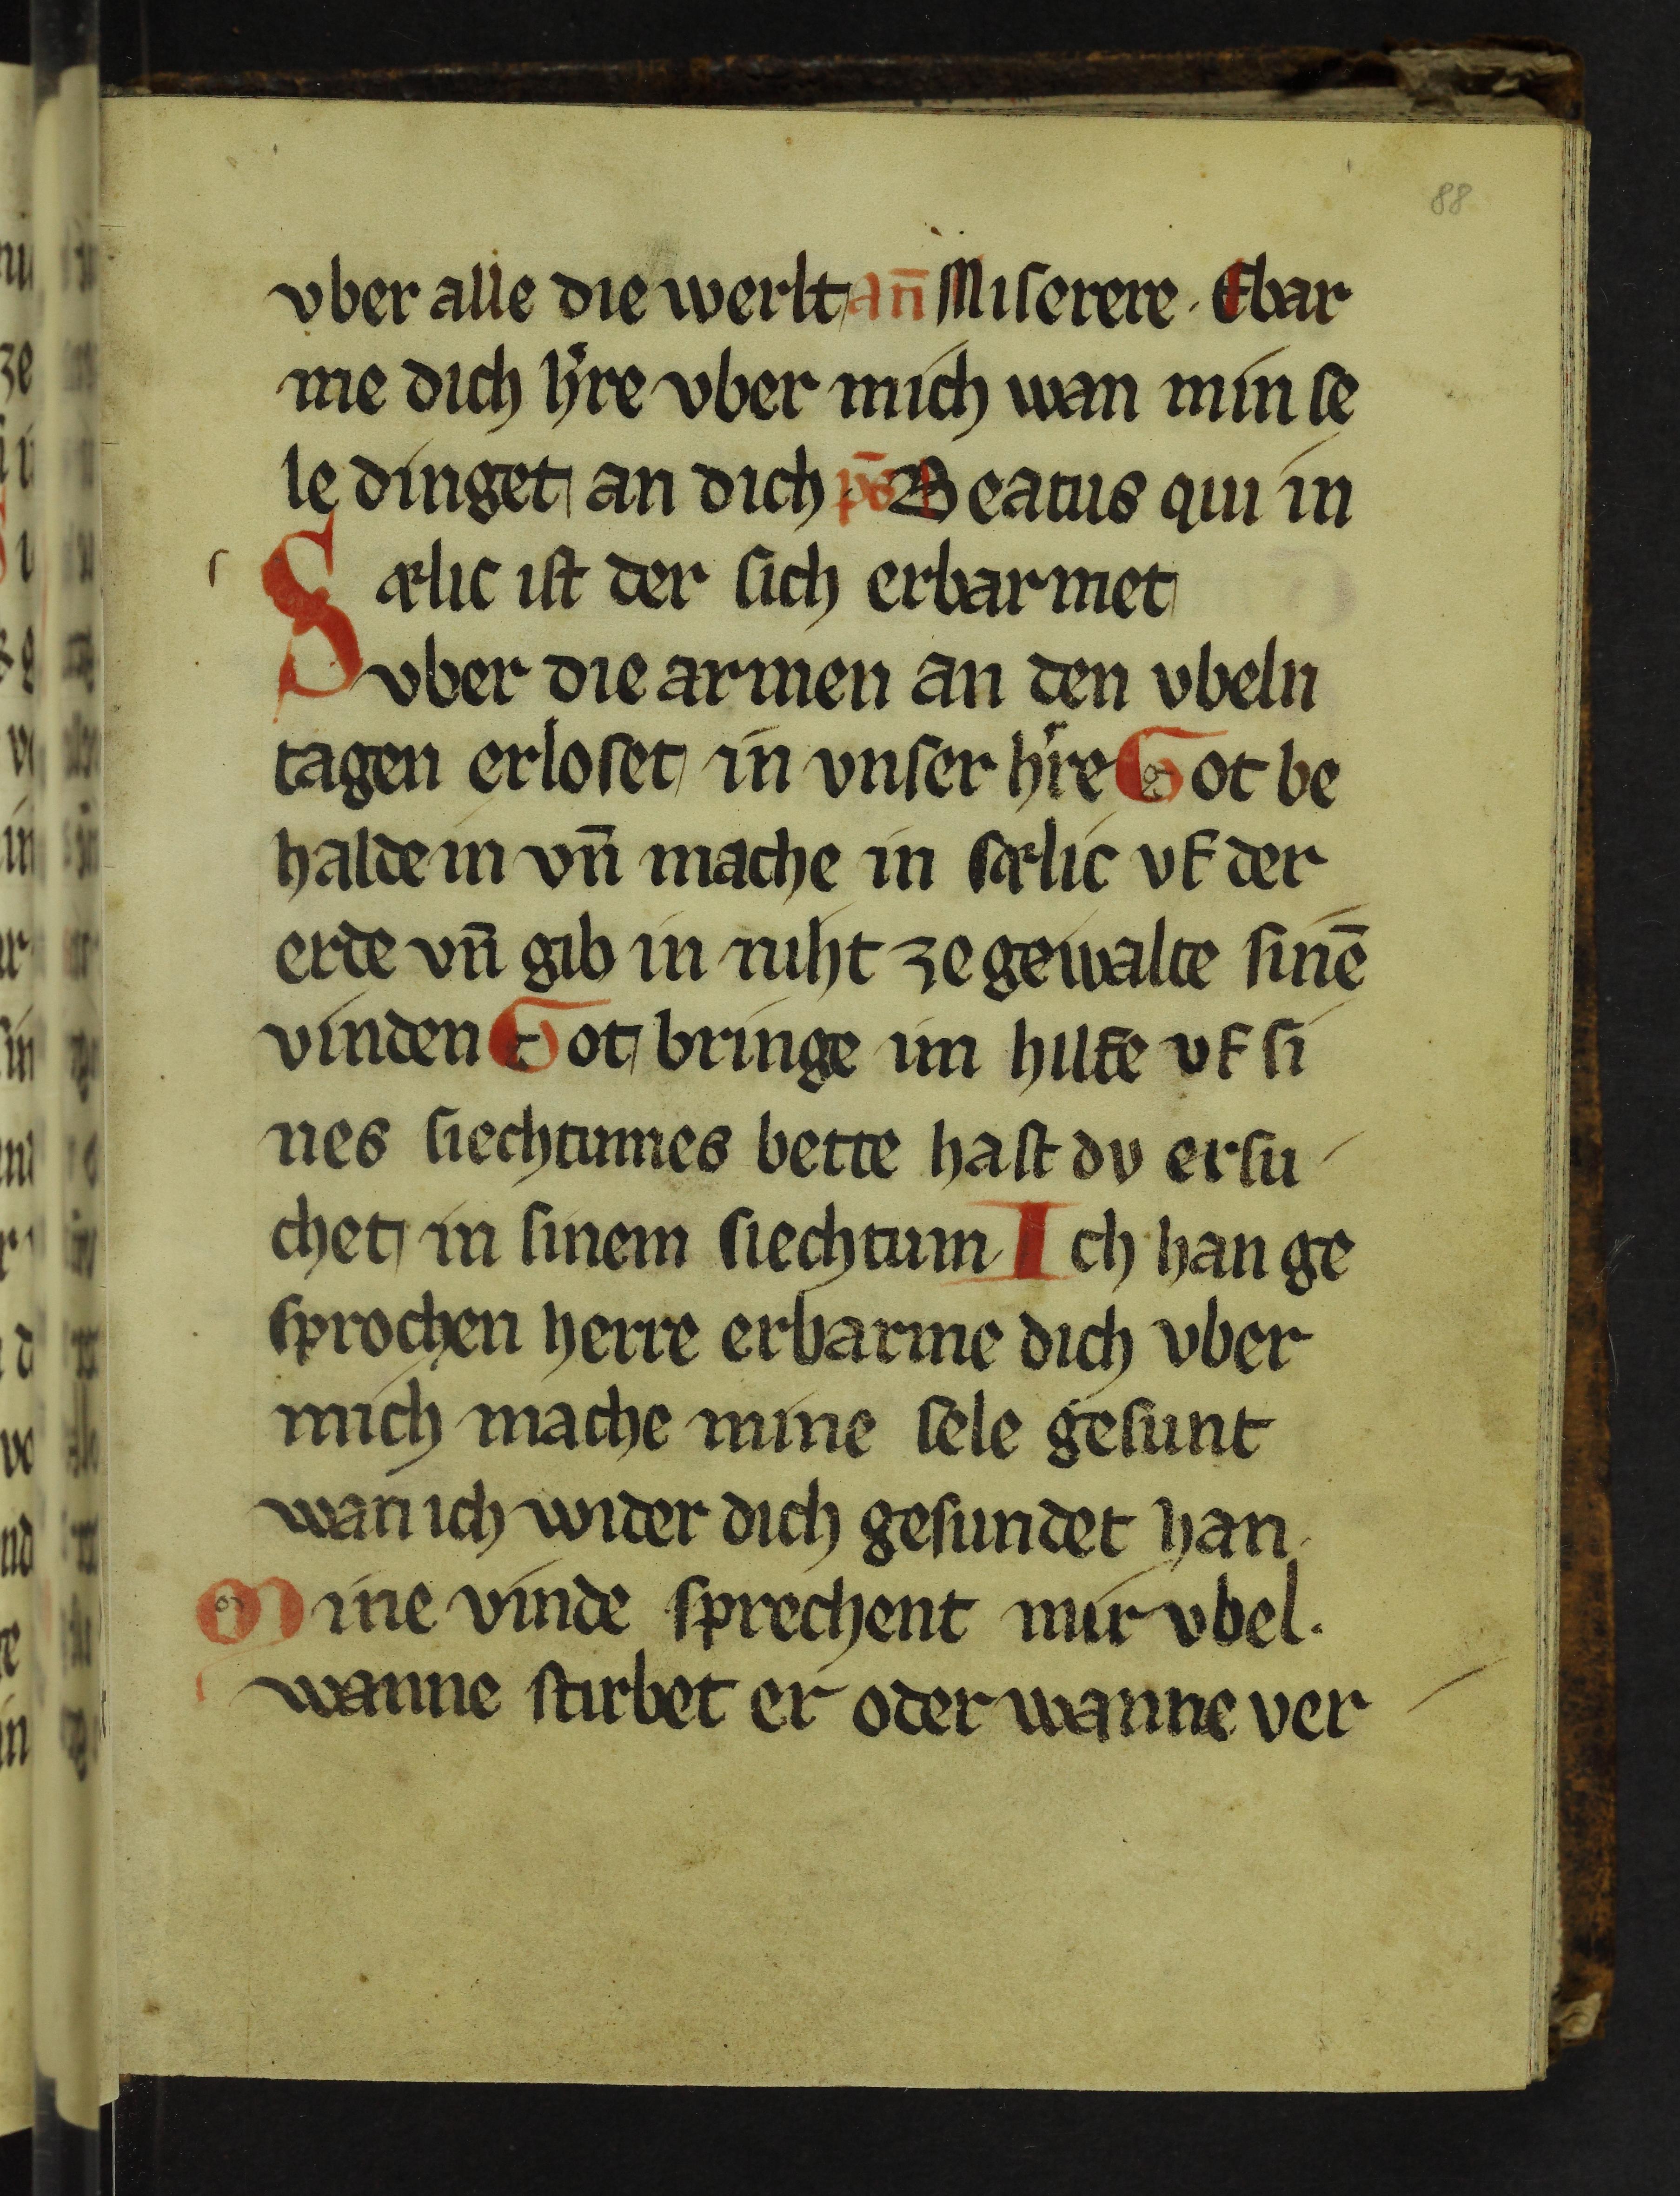 88
vber alle die werlt an̄ Miserere. Ebar
me dich h're vber mich wan min se
le dinget an dich ps̄ Beatus qui in
Sælic ist der sich erbarmet
vber die armen an den vbeln
tagen erloset in vnser h're Got be
halde in vn̄ mache in sælic vf der
erde vn̄ gib in niht ze gewalte sinē
vinden Got bringe im hilfe vf si
nes siechtumes bette hast dv ersu
chet in sinem siechtum Ich han ge
sprochen herre erbarme dich vber
mich mache mine sele gesunt
wan ich wider dich gesundet han
Mine vinde sprechent mir vbel.
wanne stirbet er oder wanne ver